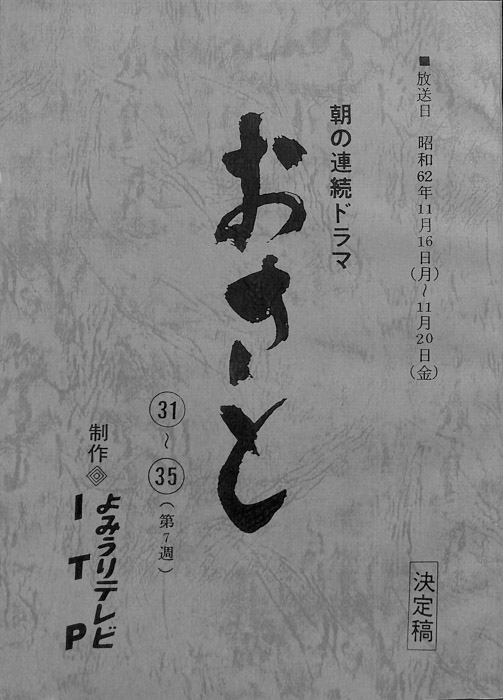 ■放送日 昭和62年11月16日(月)〜11月20日(金)
朝の連続ドラマ
おさと
㉛〜㉟(第7週)
制作
よみうりテレビ
ITP
決定稿